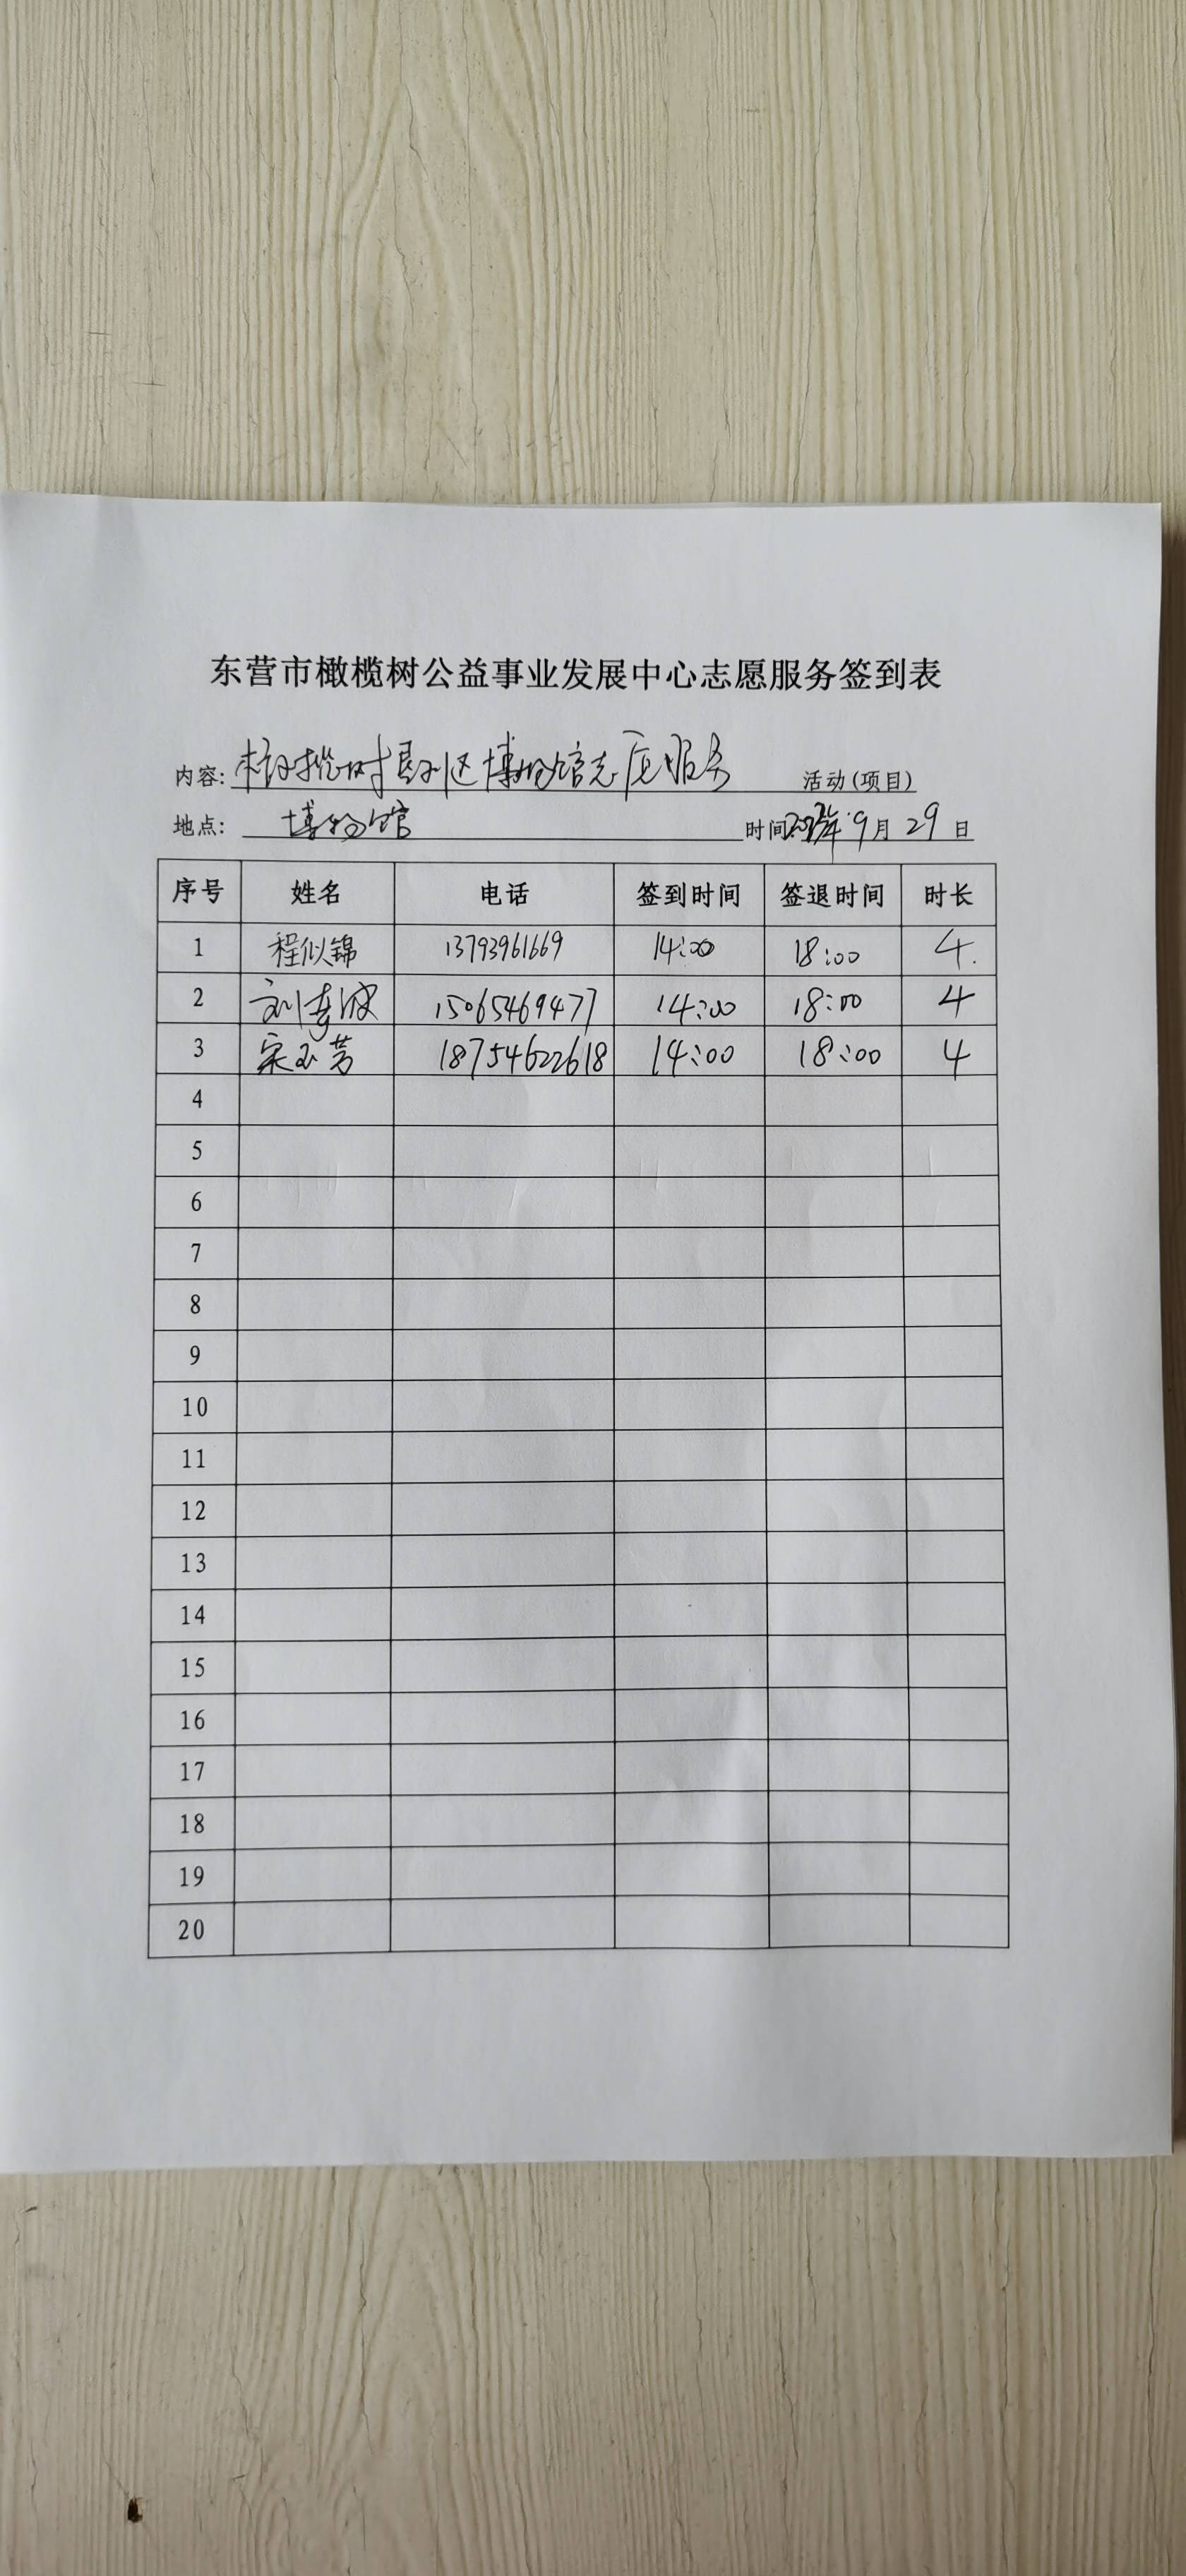 东营市橄榄树公益事业发展中心志愿服务签到表
内容: 橄榄树垦利区博物馆志愿服务 活动(项目)
地点: 博物馆 时间 年 9月 29日
序号 姓名 电话 签到时间 签退时间 时长
1 程似锦 13793961669 14:00 18:00 4.
2 刘 波 15065469477 14:00 18:00 4
3 宋玉芳 18754622618 14:00 18:00 4
4
5
6
7
8
9
10
11
12
13
14
15
16
17
18
19
20